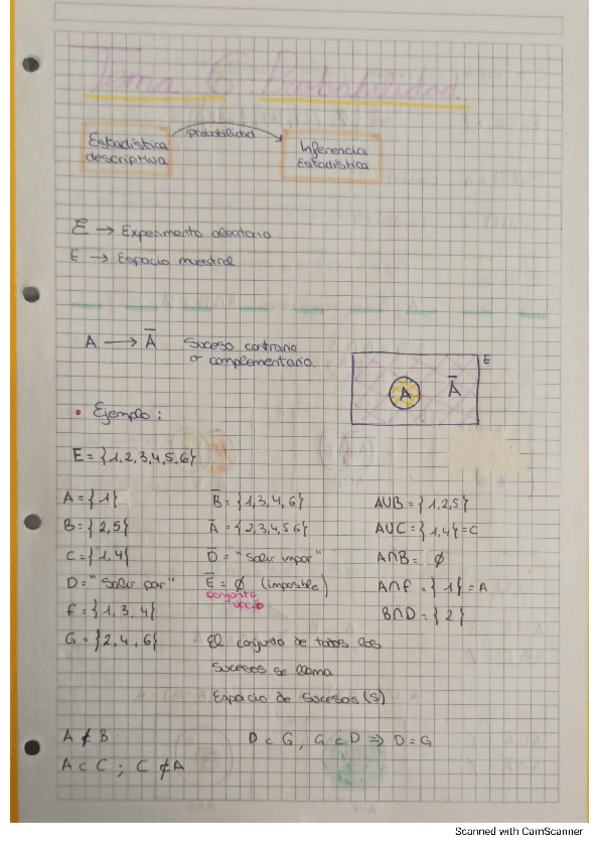 Tema 6 Probabilidad.
Estadística descriptiva
probabilidad
Inferencia Estadística
Ɛ → Experimento aleatorio
E → Espacio muestral
A → A̅ Suceso contrario
o complementario.
E
A
A̅
• Ejemplo:
E = {1,2,3,4,5,6}
A = {1}
B = {2,5}
C = {1,4}
D = "Salir par"
F = {1,3,4}
G = {2,4,6}
B̅ = {1,3,4,6}
A̅ = {2,3,4,5,6}
D̅ = "Salir impar"
E̅ = ∅ (imposible)
conjunto
vacío
El conjunto de todos los
sucesos se llama
Espacio de Sucesos (S)
A∪B = {1,2,5}
A∪C = {1,4} = C
A∩B = ∅
A∩F = {1} = A
B∩D = {2}
A ⊄ B
A ⊂ C ; C ⊄ A
D ⊂ G, G ⊂ D ⇒ D = G
Scanned with CamScanner